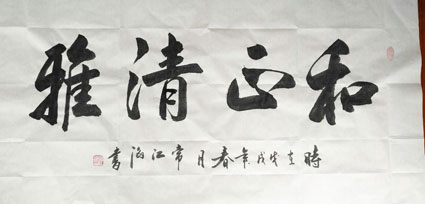 和正清雅
時在戊戌年春月常江海書